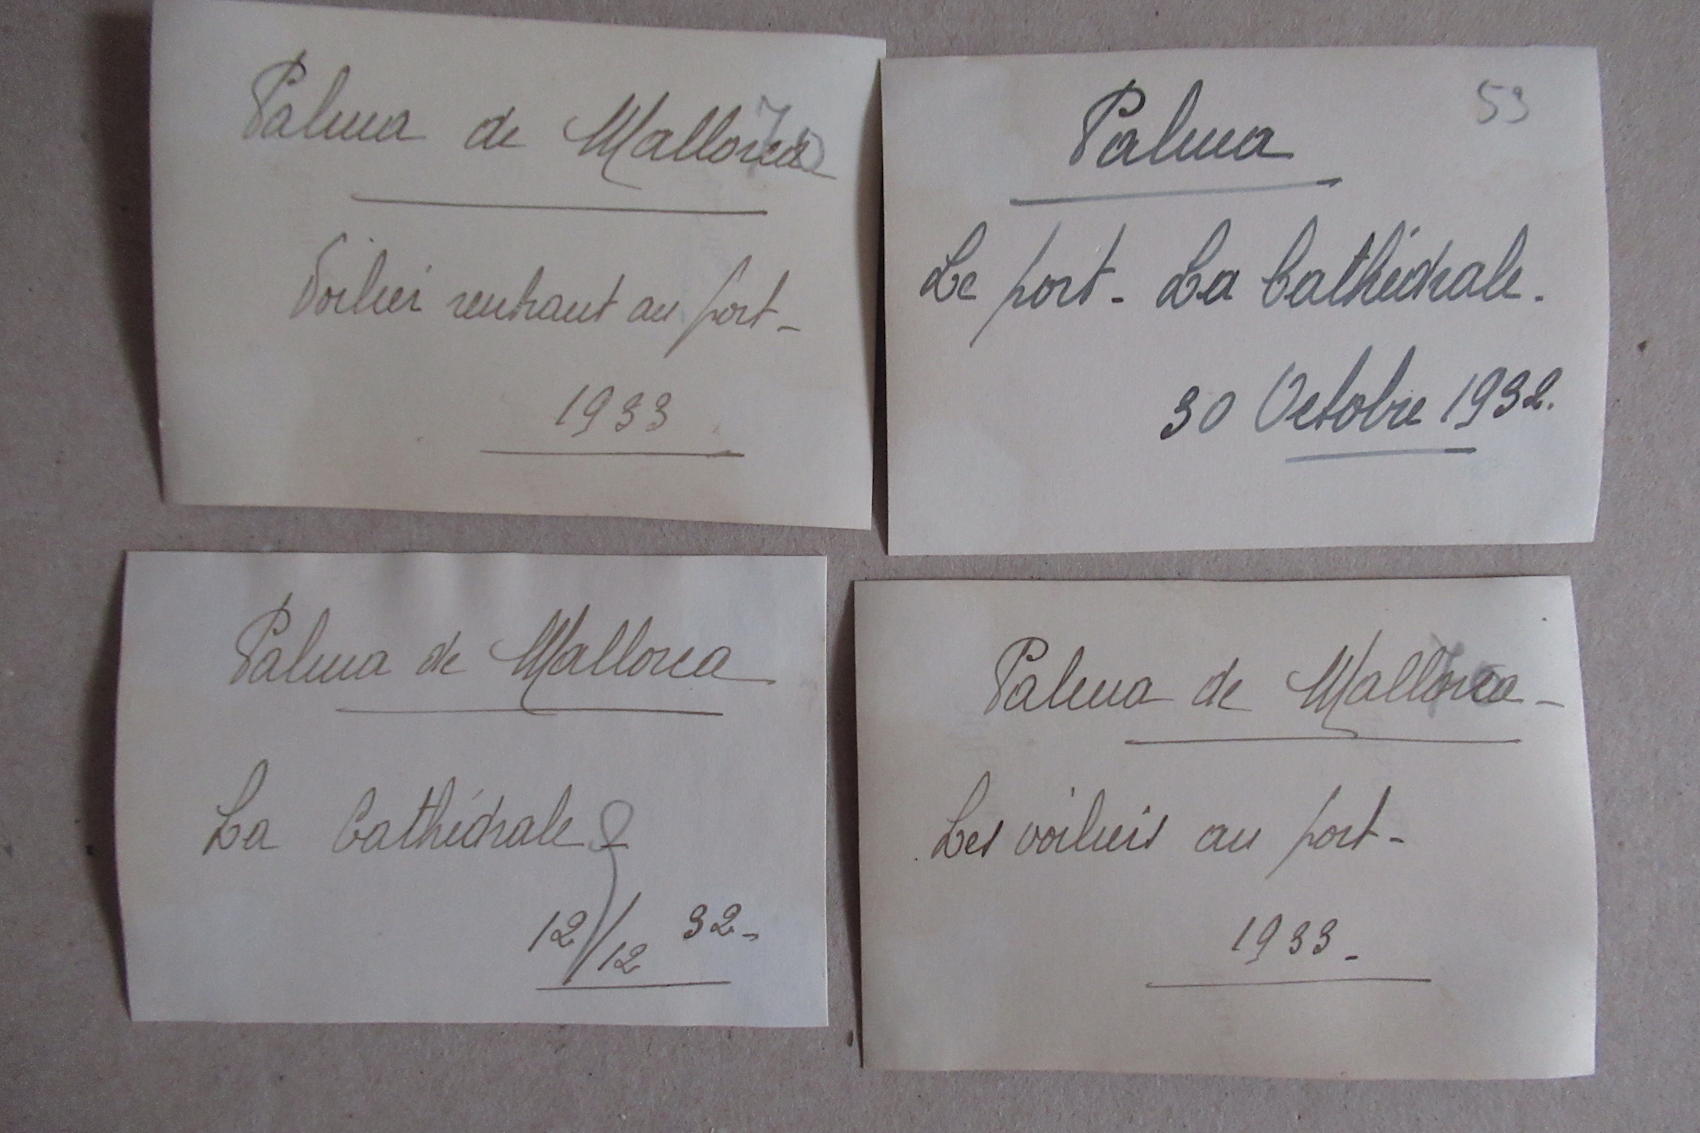 Palma de Mallorca
Voilier rentrant au port -
1933
53
Palma
Le port - La Cathédrale.
30 Octobre 1932.
Palma de Mallorca
La Cathédrale
12/12 32 -
Palma de Mallorca -
Les voiliers au port -
1933 -